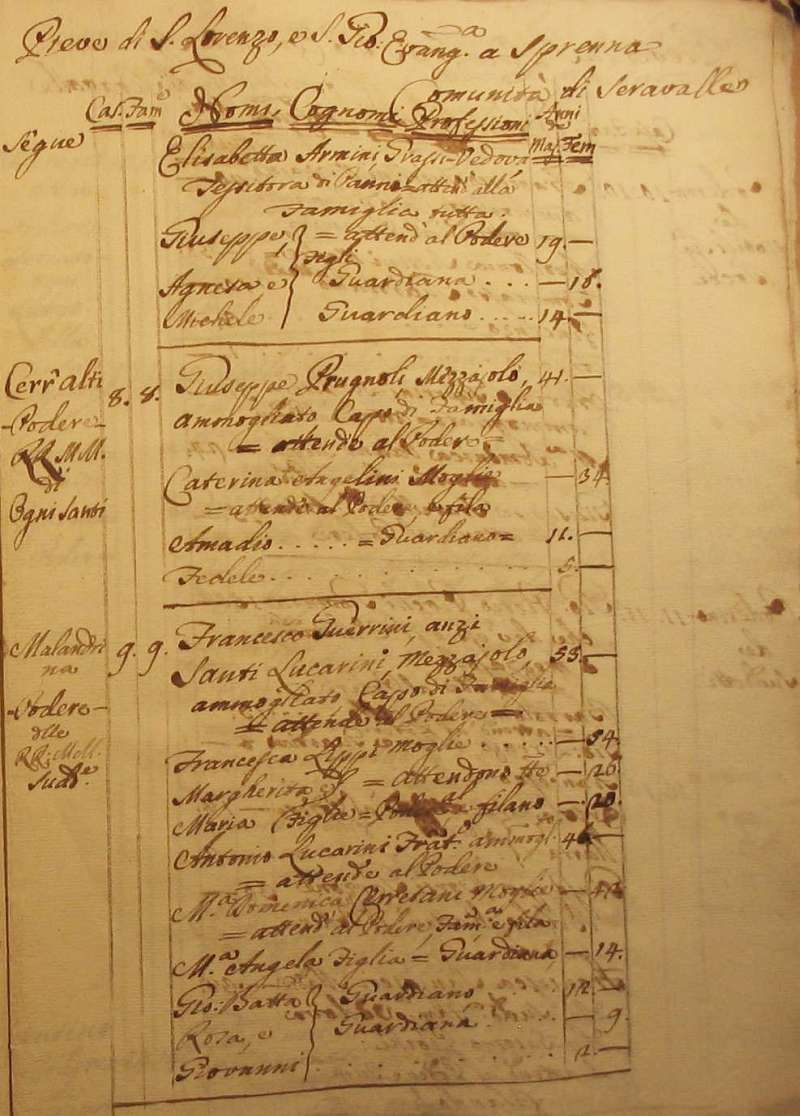 Pieve di S. Lorenzo, e S. Gio: Evang.a a Sprenna
Comunità di Seravalle
Cas. Fam.e Nomi, Cognomi Professioni Anni
Mas. Fem
Segue Elisabetta Armini, Grassi = Vedova
Tessitora di Panni = attend alla
Famiglia tutta.
Giuseppe, = attend al Podere 19. —
Figli
Agnesa e Guardiana . . . — 18.
Michele Guardiano . . . . . 14. —
Cerr'alti 8. 8. Giuseppe Prugnoli Mezzajolo, 41. —
- Podere - ammogliato Capo di Famiglia
RR. MM. = attende al Podere =
di Caterina Angelini Moglie — 34.
Ogni Santi = attende al Podere, e fila
Amadio . . . . . = Guardiano = 11. —
Fedele . . . . . . . . . . . . 5. —
Malandri 9. 9. Francesco Guerrini, anzi
na Santi Lucarini, Mezzajolo, 55. —
- Podere - ammogliato, Capo di Famiglia
dlle = attende al Podere =
RR: MM: Francesca Lippi moglie . . . . . — 54.
Sudd.e Margherita, e = attendono — 26.
Maria Figlie = filano — 20.
Antonio Lucarini Frat. ammogl.to —
= attende al Podere
M.a Domenica Cerretani Moglie —
= attend al Podere, Fam.a e fila
M.a Angela Figlia = Guardiana — 14.
Gio: Batta Guardiano 12. —
Rosa, e Guardiana . . — 9.
Giovanni . . . . . . . . 2. —